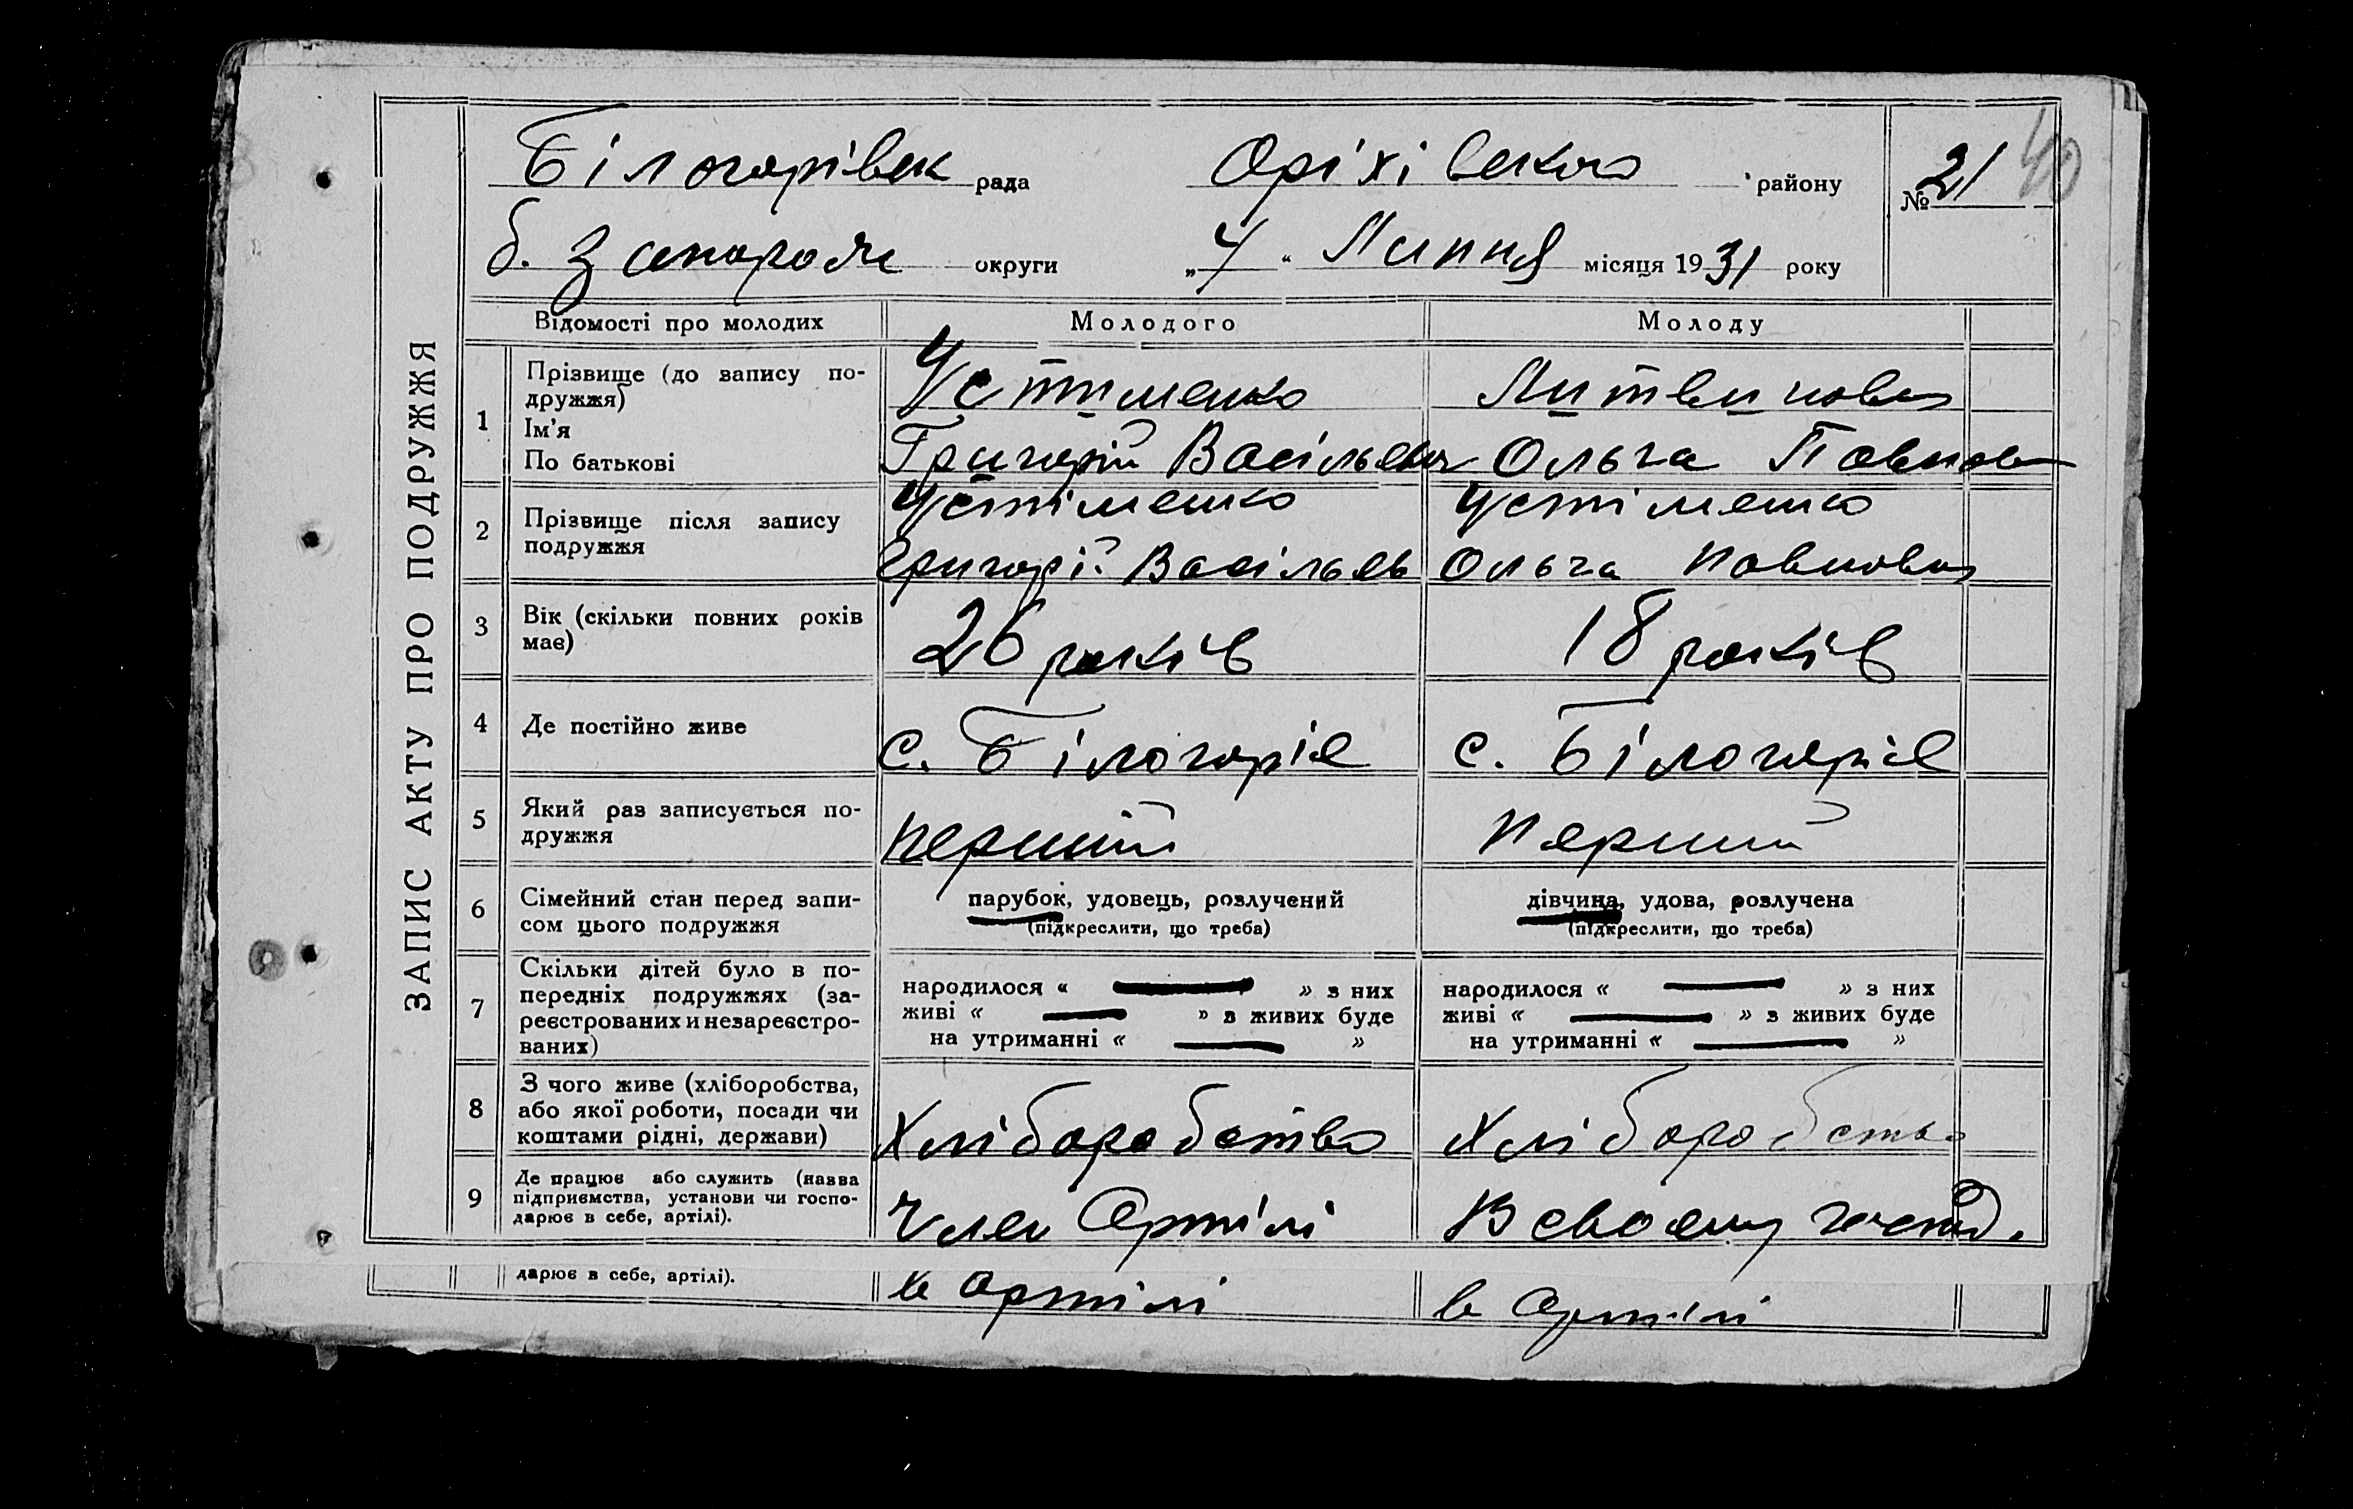 Білогорівск рада Оріхівского району № 21 40
б. Запорож округи „4" Липня місяця 1931 року
ЗАПИС АКТУ ПРО ПОДРУЖЖЯ
Відомості про молодих Молодого Молоду
1 Прізвище (до запису по-
дружжя) Устименко Литвинова
Ім'я
По батькові Григорій Васільевич Ольга Павлов
2 Прізвище після запису
подружжя
Устіменко Устіменко
Григорій Васільев Ольга Павловна
3 Вік (скільки повних років
має) 26 років 18 років
4 Де постійно живе с. Білогоріє с. Білогоріє
5 Який раз записується по-
дружжя перший перший
6 Сімейний стан перед запи-
сом цього подружжя
парубок, удовець, розлучений дівчина, удова, розлучена
(підкреслити, що треба) (підкреслити, що треба)
7 Скільки дітей було в по-
передніх подружжях (за-
реєстрованих и незареєстро-
ваних)
народилося « — » з них народилося « — » з них
живі « — » з живих буде живі « — » з живих буде
на утриманні « — » на утриманні « — »
8 З чого живе (хліборобства,
або якої роботи, посади чи
коштами рідні, держави)
Хліборобство Хліборобство
9 Де працює або служить (назва
підприємства, установи чи госпо-
дарює в себе, артілі).
Член Артілі В своему господ.
дарює в себе, артілі).
в артілі в Артілі